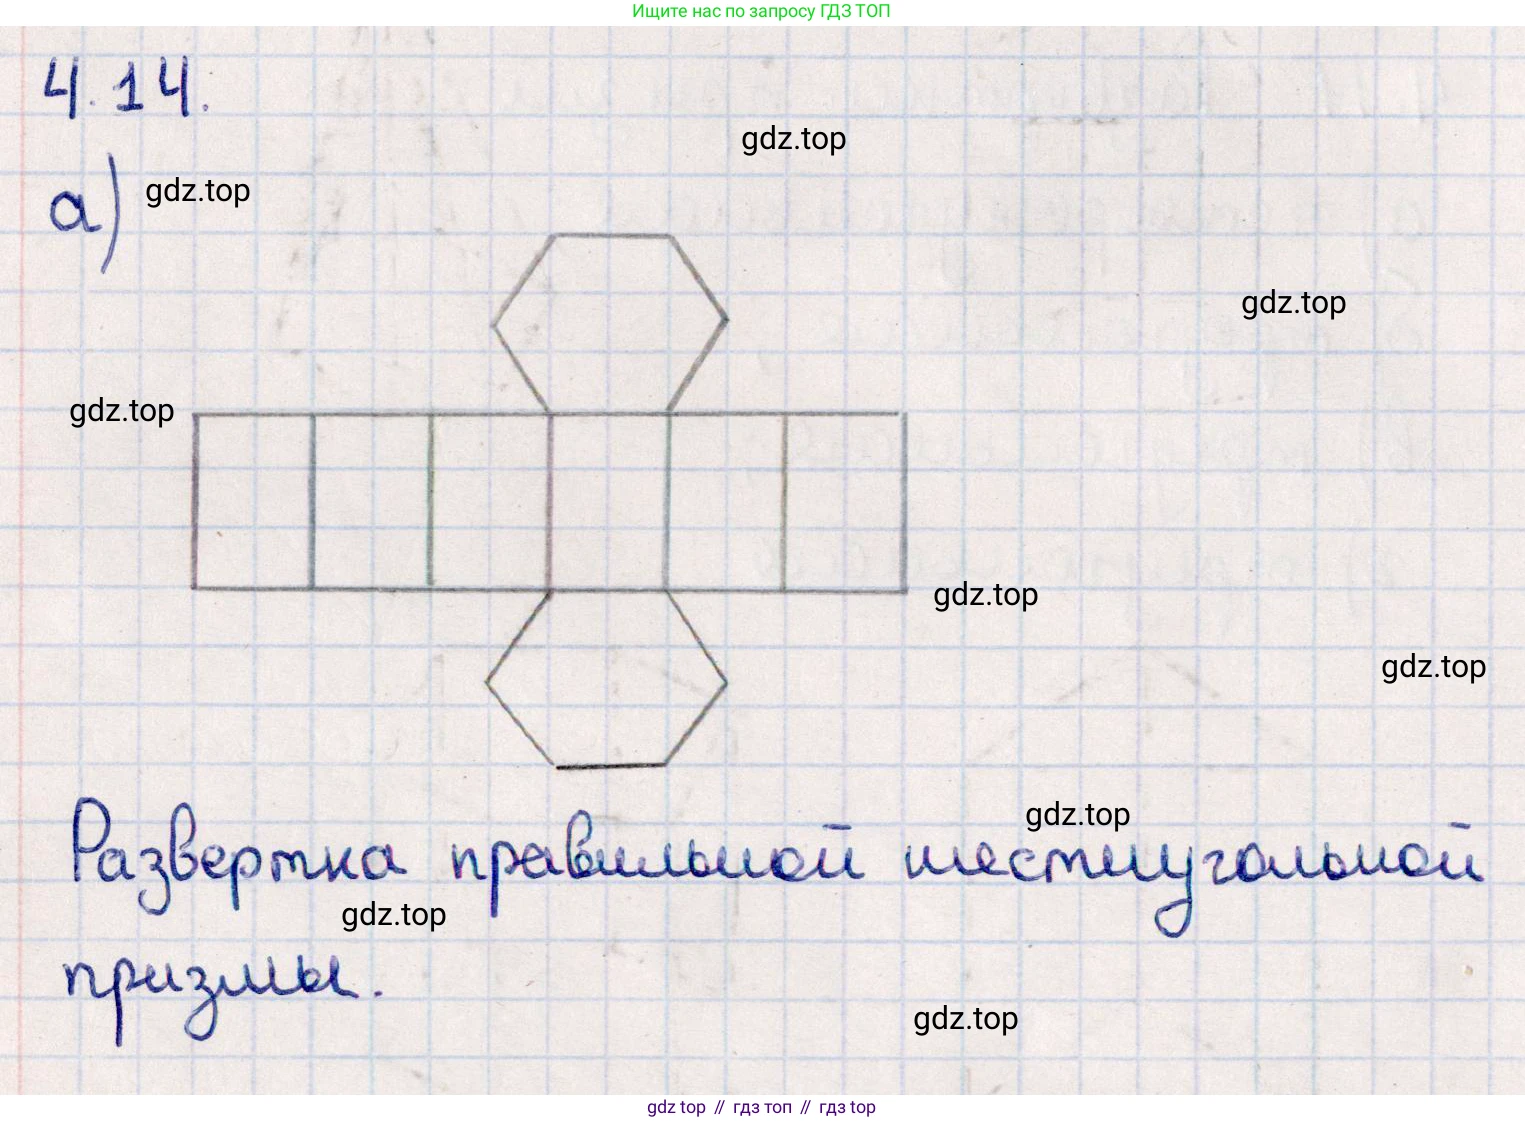 Ищите нас по запросу ГДЗ ТОП
4.14.
gdz.top
а) gdz.top
gdz.top
gdz.top
gdz.top
gdz.top
gdz.top
Развертка правильной шестиугольной
gdz.top
призмы.
gdz.top
gdz top // гдз топ // гдз top